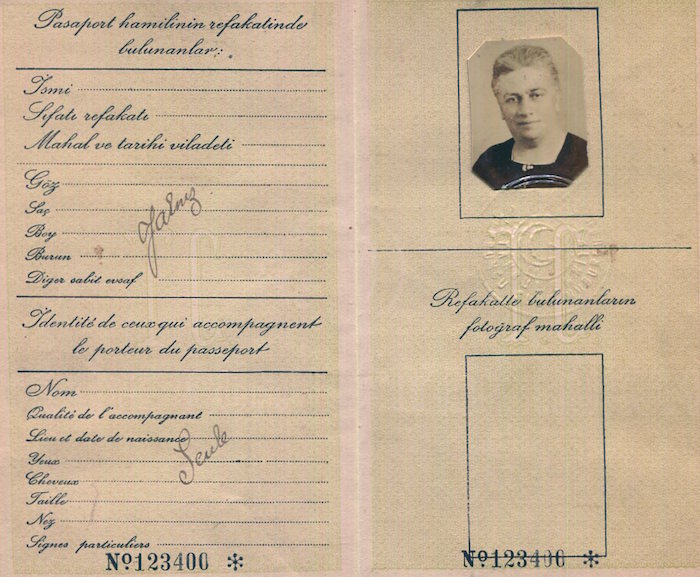 Pasaport hamilinin refakatinde
bulunanlar:
Ismi
Sıfatı refakatı
Mahal ve tarihi viladeti
Göz
Saç
Boy
Burun
Diger sabit evsaf
Yalnız
Identité de ceux qui accompagnent
le porteur du passeport
Nom
Qualité de l'accompagnant
Lieu et date de naissance
Yeux
Cheveux
Taille
Nez
Signes particuliers
Seule
Nº123400 *
Refakatte bulunanların
fotoğraf mahalli
Nº123400 *